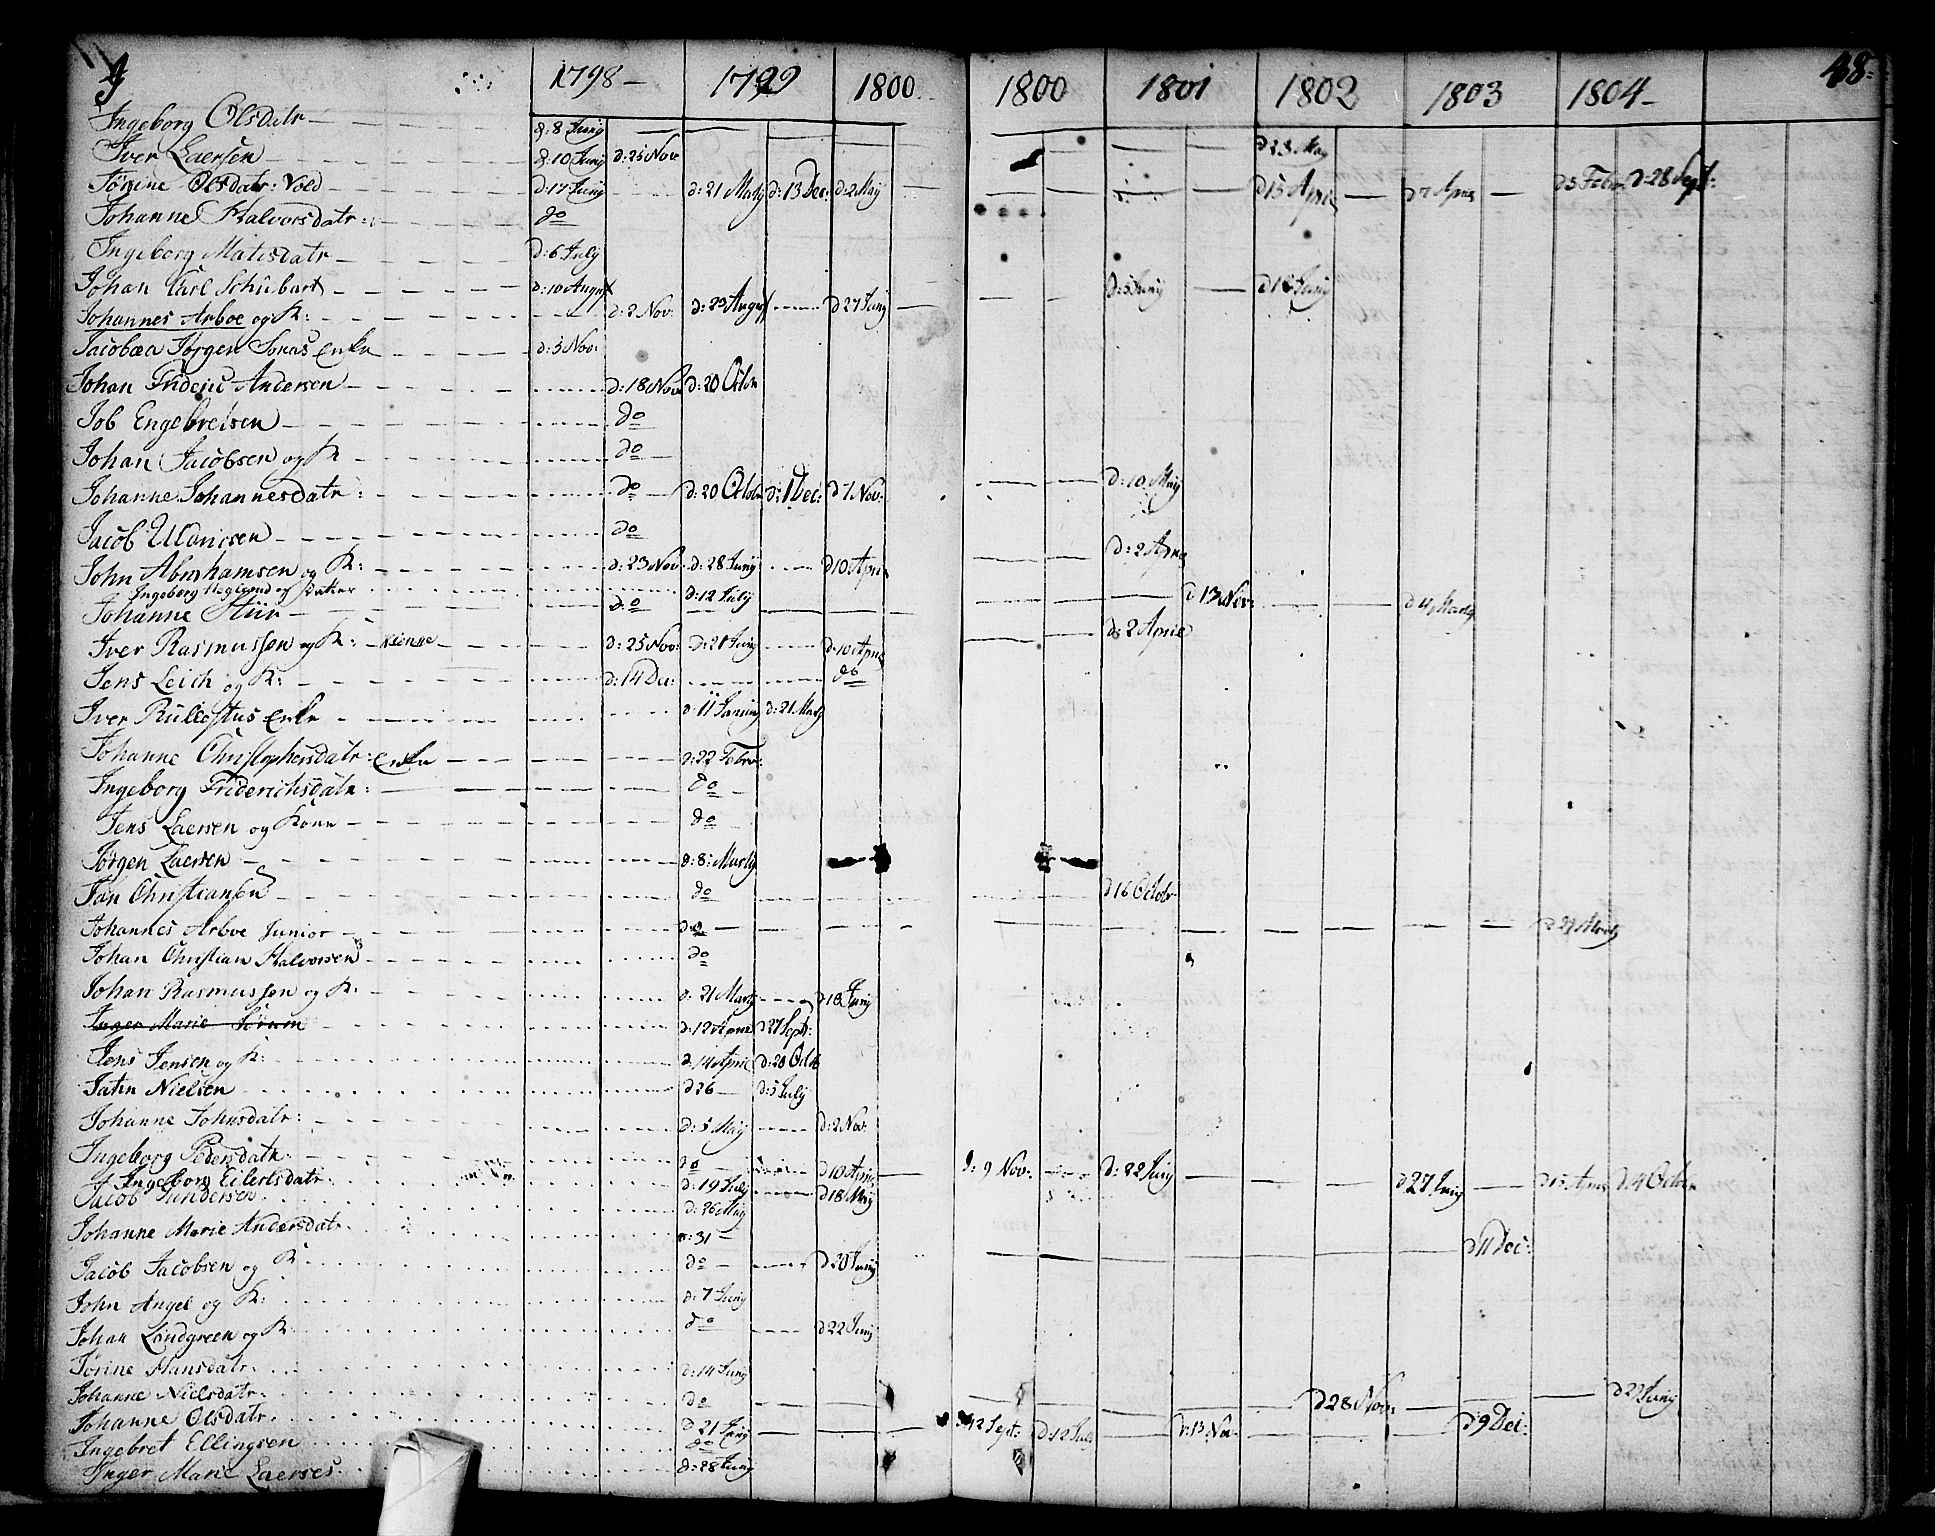 J 1798 – 1799 1800 1800 1801 1802 1803 1804 – 48
Ingeborg Olsdatr d: 8 Junij
Iver Laersen d: 10 Junij d: 25 Nov d 23 May
Jørine Olsdatr: Vold d: 17 Junij d: 21 Martij d: 13 Dec: d: 2 Maij d 15 April d 7 April d 5 Febr. d: 28 Sept:
Johanne Halvorsdatr: do
Ingeborg Matisdatr d: 6 July
Johan Carl Schubart d: 10 August d: 5 Junij d 16 Junij
Johannes Arboe og K: d: 2 Nov: d: 23 August d: 27 Junij
Jacobæa Jørgen Jonas Enke d: 5 Nov:
Johan Frideric Andersen d: 18 Nov d: 20 Octbr
Job Engebretsen do
Johan Jacobsen og K do
Johanne Johannesdatr: do d: 20 Octobr d: 1 Dec: d 7 Nov: d: 10 Maij
Jacob Uldricsen do
John Abrahamsen og K: d: 23 Nov d: 28 Junij d 10 April d: 2 April
Ingeborg Høglund og Datter d: 12 July
Johanne Stür do d 13 Nov: d 4 Martij
Iver Rasmussen og K: d: 25 Nov: d: 21 Junij d: 10 April d: 2 April
Jens Leich og K: d: 14 De: do
Iver Rullestus Enke d: 11 Januarij d: 21 Martij
Johanne Christophersdatr: Enke d: 22 Febr:
Ingeborg Friderichsdatr: do
Jens Laersen og Kone do
Jørgen Laersen d: 8: Martij
Jan Christiansen do d 16 Octobr
Johannes Arboe Junior do d 21 Martij
Johan Christian Halvorsen do
Johan Rasmussen og K: d: 21 Martij d 18 Junij
Inger Marie Sørum d: 12 April d 27 Sept:
Jens Jensen og K: d: 14 April d: 20 Octb
Jahn Nielsen d 26 – d: 5 July
Johanne Johnsdatr: d: 5 Maij d: 2 Nov:
Ingeborg Pedersdatr: do d 10 April d: 9 Nov: d: 22 Junij d 27 Junij d 15 April d 4 Octbr
Ingeborg Eilertsdatr: d: 19 July d 18 Maij
Jacob Gundersen d: 26 Maij
Johanne Marie Andersdatr. d: 31 – d 11 Dec:
Jacob Jacobsen og K do – d 20 Junij
John Angel og K: d: 7 Junij
Johan Landgreen og K do d 22 Junij
Jørine Hansdatr. d: 14 Junij
Johanne Nielsdatr. do d 28 Nov: d 22 Junij
Johanne Olsdatr. d: 21 Junij d 12 Sept: d 12 July d: 13 Nov: d 9 Dec:
Ingebret Ellingsen do
Inger Marie Laerses d: 28 Junij